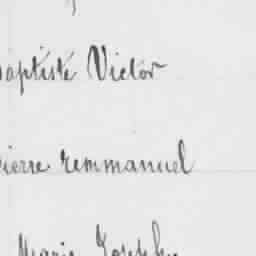 Baptiste Victor
Pierre Emmanuel
Marie Joseph